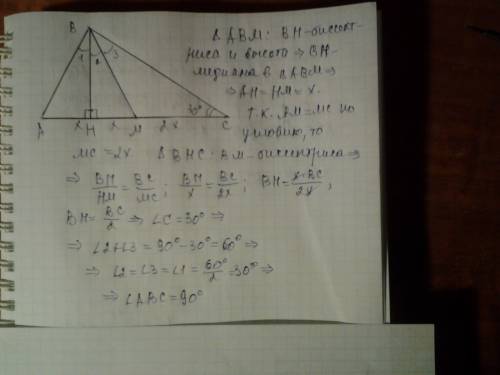 B
1 2 3
30°
A x H x M 2x C
Δ ABM: BH-биссект-
риса и высота ⇒ BH-
медиана в ΔABM ⇒
⇒ AH = HM = x.
Т.К. AM = MC по
условию, то
MC = 2x Δ BHC: BM-биссектриса ⇒
⇒ BH/HM = BC/MC; BH/x = BC/2x; BH = x·BC/2x;
BH = BC/2 ⇒ ∠C = 30° ⇒
⇒ ∠2+∠3 = 90° - 30° = 60° ⇒
⇒ ∠2 = ∠3 = ∠1 = 60°/2 = 30° ⇒
⇒ ∠ABC = 90°